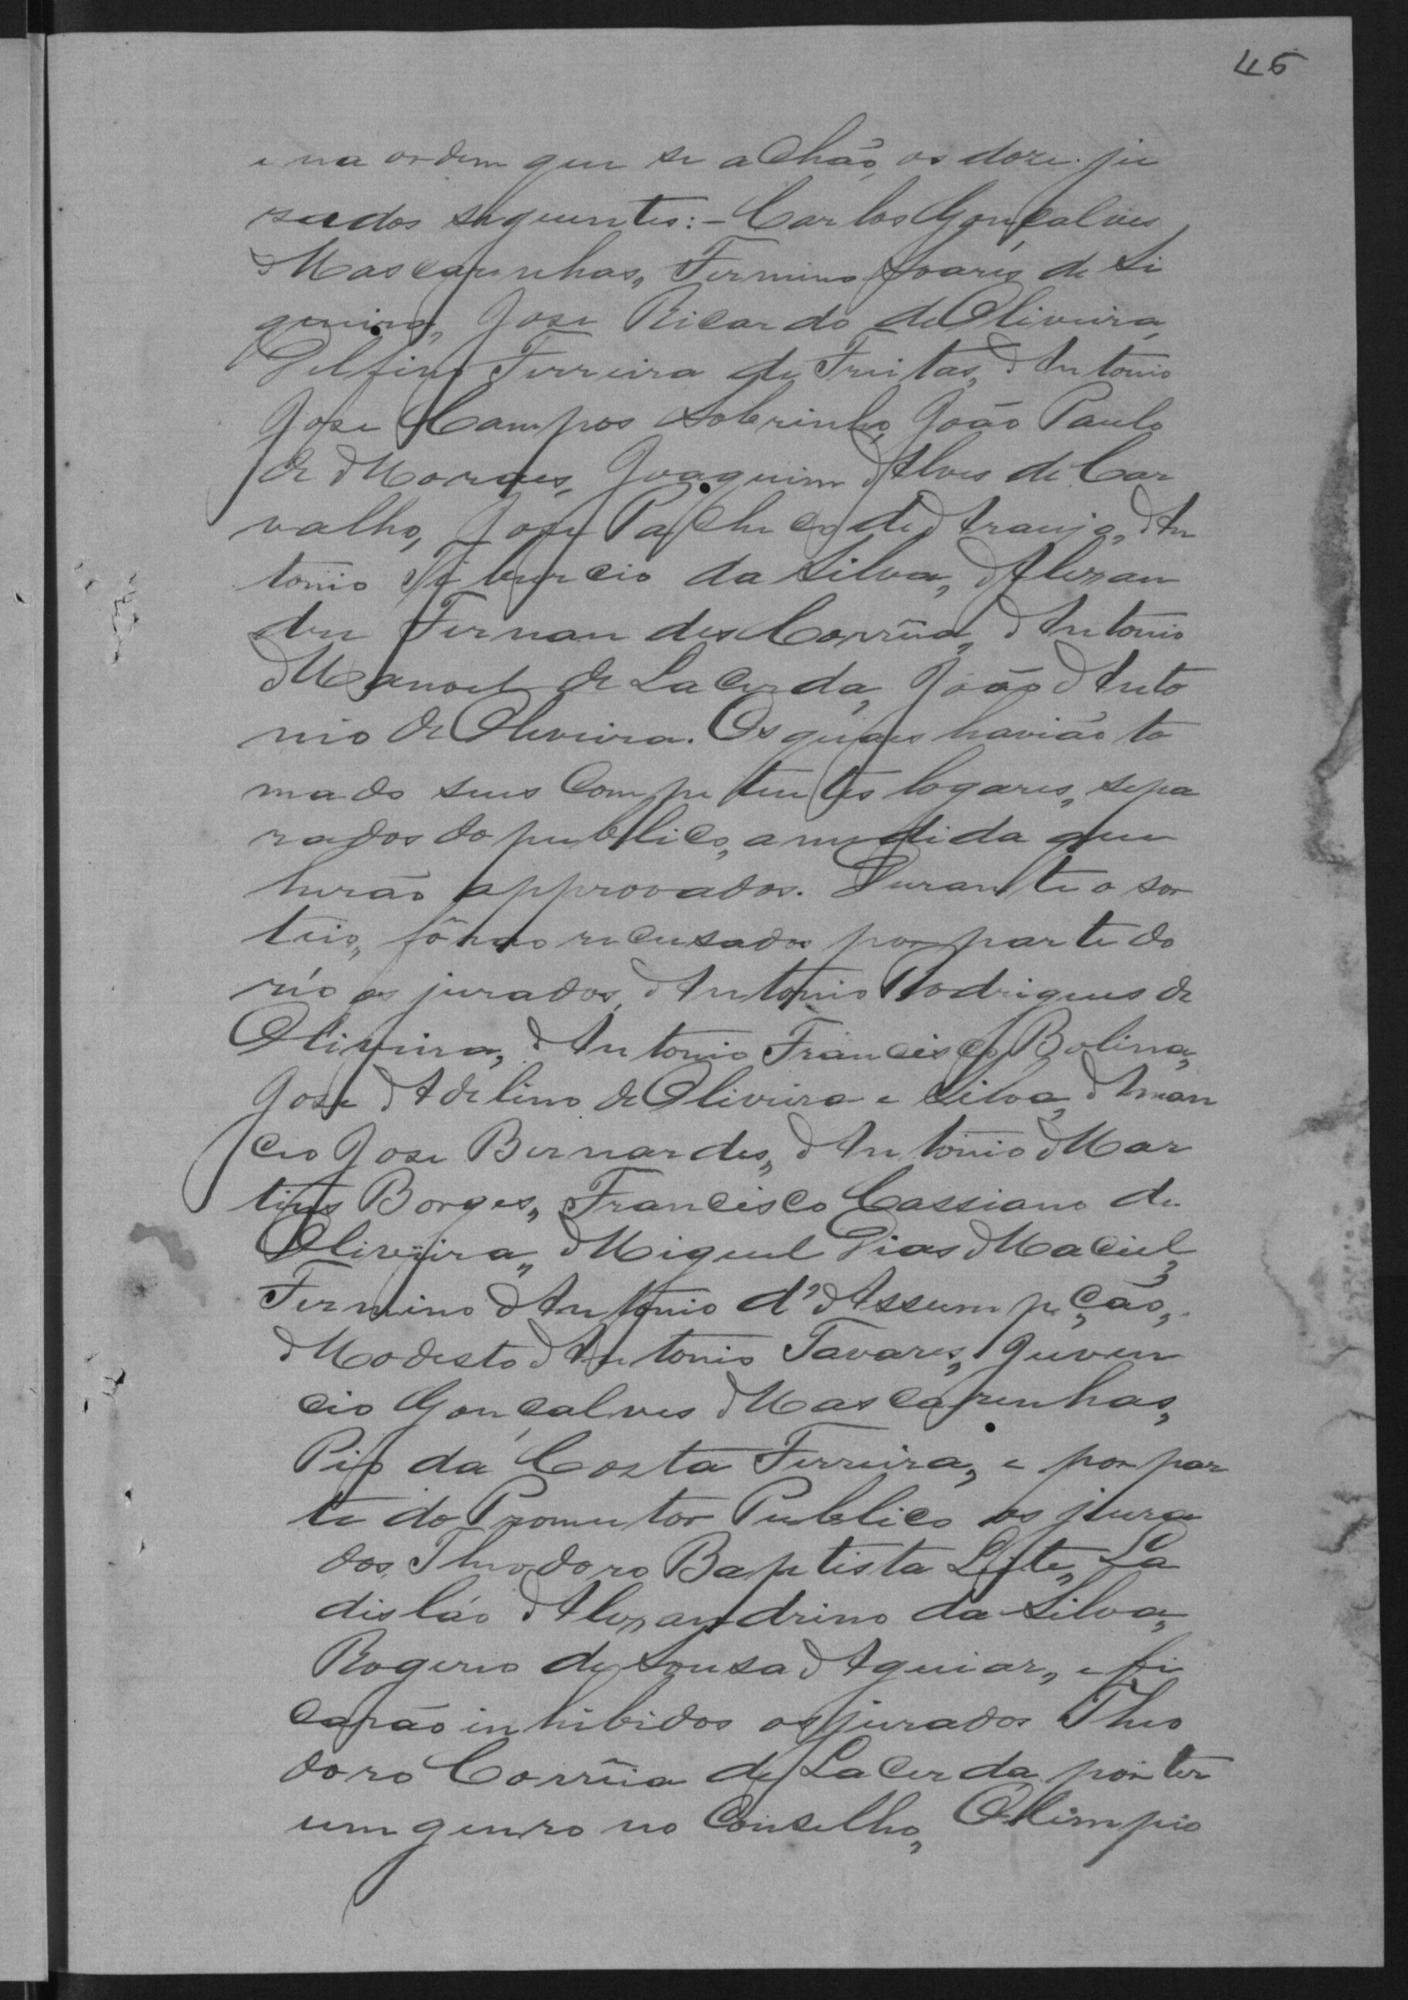 45
e na ordem que se achão, os doze ju
rados seguintes: - Carlos Gonçalves
Mascarenhas, Fermino Soares de Si
queira, Jose Ricardo de Oliveira,
Delfino Ferreira de Freitas, Antonio
Jose Campos Sobrinho, João Paulo
de Moraes, Joaquim Alves de Car
valho, Jose Pacheco de Araujo, An
tonio Tiburcio da Silva, Alexan
dre Fernandes Corrêa, Antonio
Manoel de Lacerda, João Anto
nio de Oliveira. Os quaes havião to
mado seus competentes logares, sepa
rados do publico, a medida que
herão approvados. Durante o sor
teio, fôrão recusados por parte do
réo os jurados, Antonio Rodrigues de
Oliveira, Antonio Francisco Bolina,
Jose Adelino de Oliveira e Silva, Aman
cio Jose Bernardes, Antonio Mar
tins Borges, Francisco Cassiano de
Oliveira, Miguel Dias Maciel,
Fermino Antonio d'Assumpção,
Modesto Antonio Tavares, Juven
cio Gonçalves Mascarenhas,
Pio da Costa Ferreira, e por par
te do Promutor Publico os jura
dos, Theodoro Baptista Leite, La
disláo Alexandrino da Silva,
Rogerio de Sousa Aguiar, e fi
carão inhibidos os jurados Theo
doro Corrêa de Lacerda por ter
um genro no Conselho, Olimpio